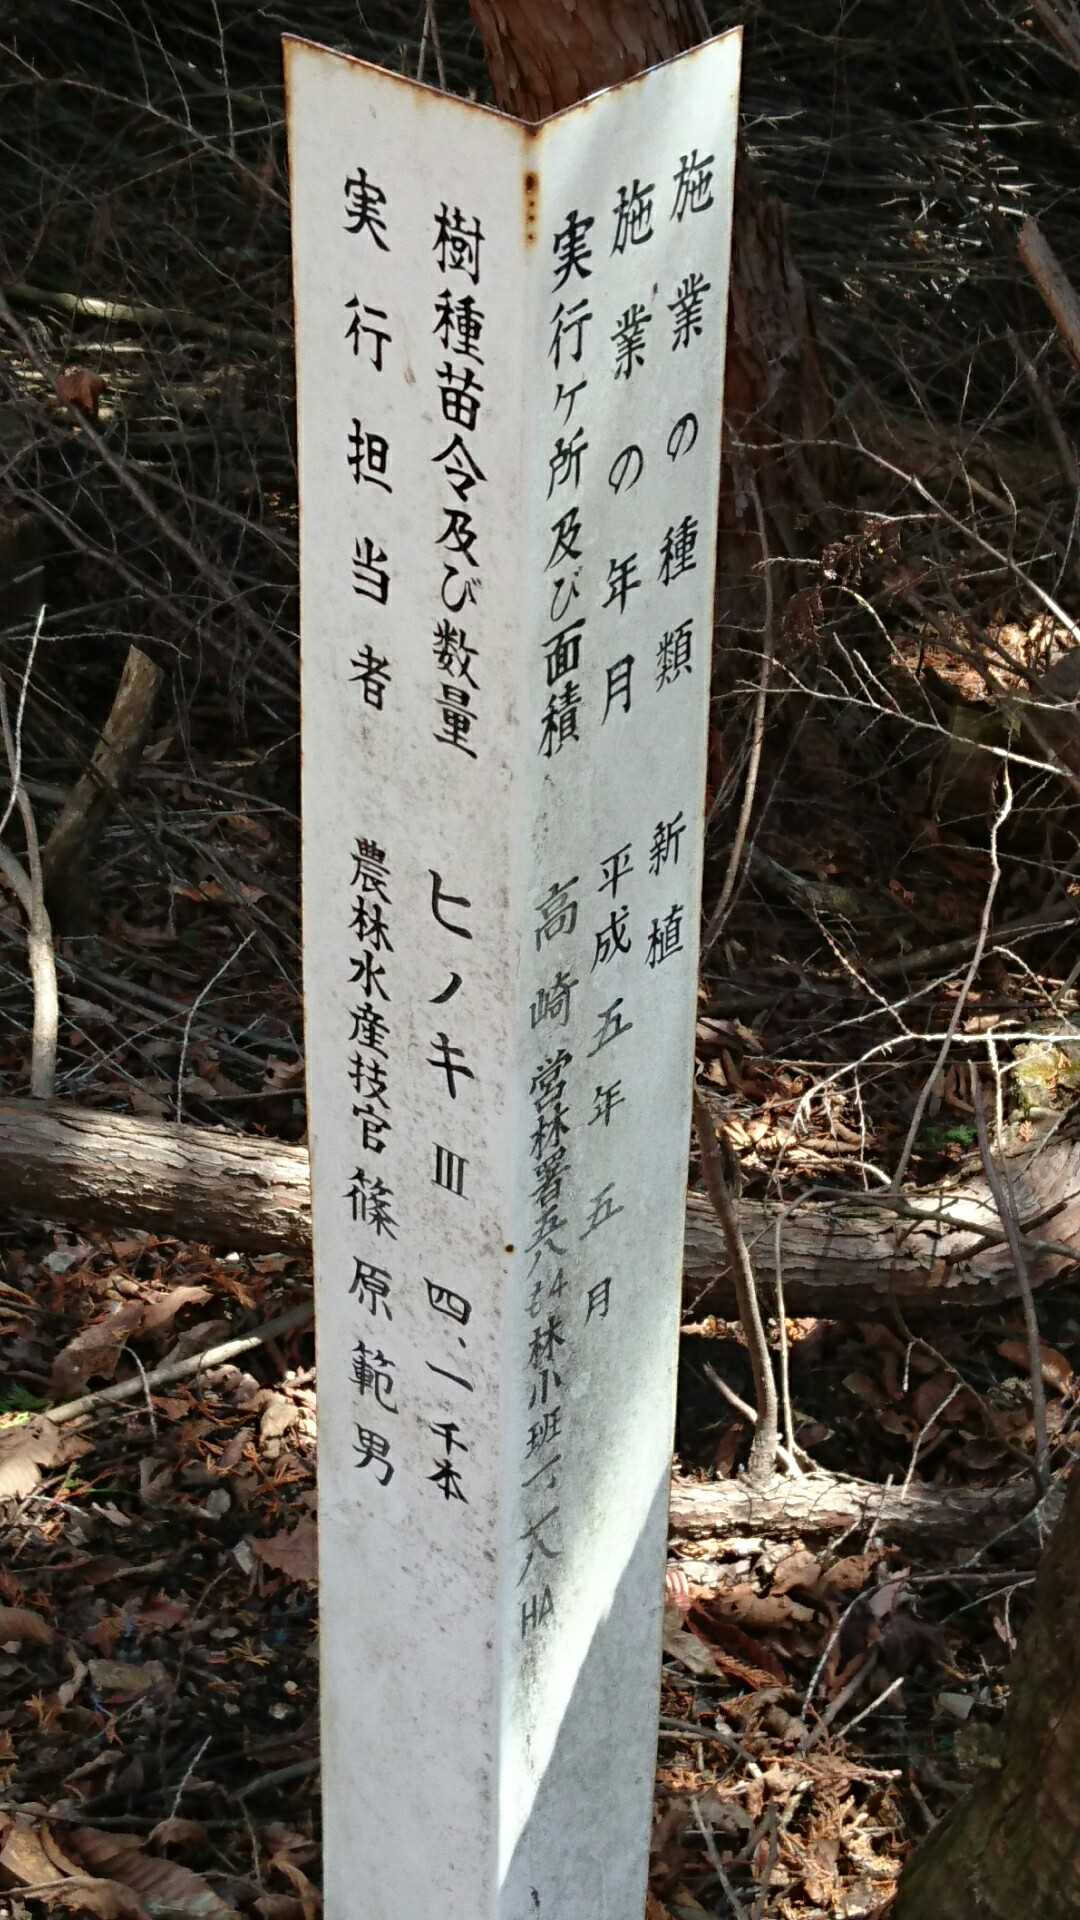 施業の種類 新植
施業の年月 平成五年五月
実行ケ所及び面積 高崎営林署五八 林小班 HA
樹種苗令及び数量 ヒノキ Ⅲ 四、一千本
実行担当者 農林水産技官 篠原範男